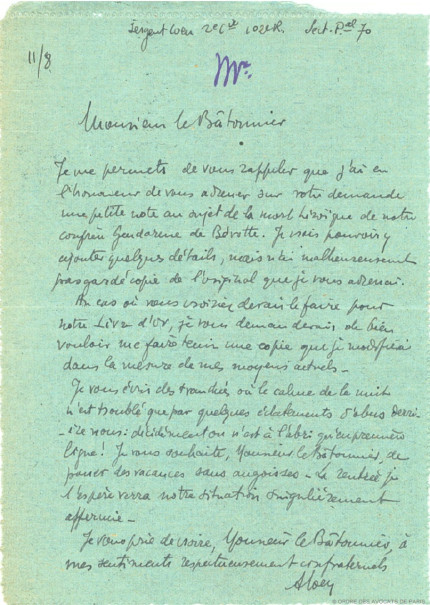 Sergent Weil 2e Cie 102e R. Sect. Pal 70
11/8
Mr.
Monsieur le Bâtonnier
Je me permets de vous rappeler que j'ai eu
l'honneur de vous adresser sur votre demande
une petite note au sujet de la mort héroïque de notre
confrère Gendarme de Bévotte. Je crois pouvoir y
ajouter quelques détails, mais n'ai malheureusement
pas gardé copie de l'original que je vous adressai.
Au cas où vous croiriez devoir le faire pour
notre Livre d'Or, je vous demanderais de bien
vouloir me faire tenir une copie que je modifierai
dans la mesure de mes moyens actuels -
Je vous écris des tranchées où le calme de la nuit
n'est troublé que par quelques éclatements d'obus derri-
ère nous : décidément on n'est à l'abri qu'en première
ligne ! Je vous souhaite, Monsieur le Bâtonnier, de
passer des vacances sans angoisses - La rentrée je
l'espère verra notre situation singulièrement
affermie -
Je vous prie de croire, Monsieur le Bâtonnier, à
mes sentiments respectueusement confraternels
© ORDRE DES AVOCATS DE PARIS